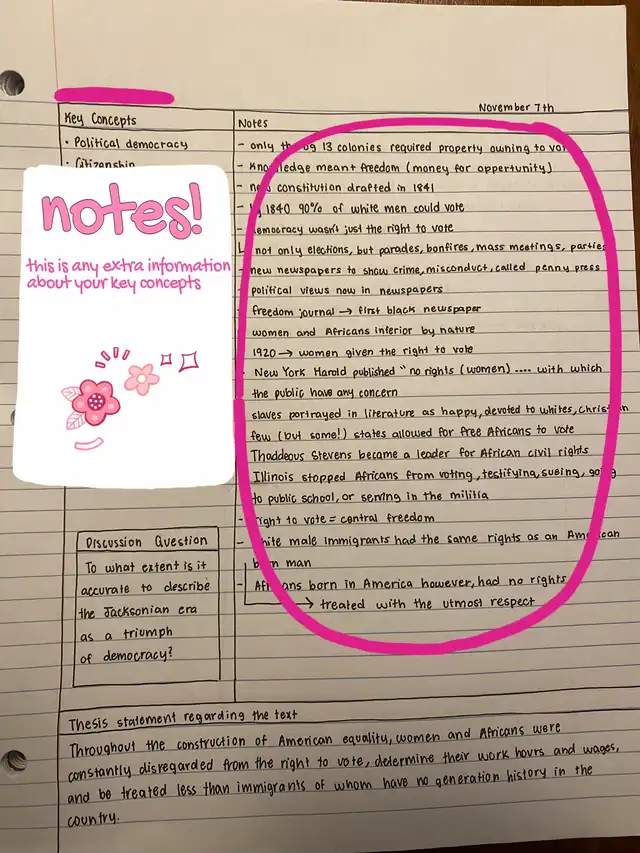 November 7th
Key Concepts
Notes
• Political democracy
• Citizenship
notes!
this is any extra information
about your key concepts
- only the 13 colonies required property owning to
- Knowledge meant freedom (money for oppertunity)
- new constitution drafted in 1841
- by 1840 90% of white men could vote
democracy wasn't just the right to vote
not only elections, but parades, bonfires, mass meetings, parties
new newspapers to show crime, misconduct, called penny press
political views now in newspapers
freedom journal → first black newspaper
women and Africans inferior by nature
1920 → women given the right to vote
New York Harold published "no rights (women) .... with which
the public have any concern
slaves portrayed in literature as happy, devoted to whites, Christian
few (but some!) states allowed for free Africans to vote
Thaddeous Stevens became a leader for African civil rights
Illinois stopped Africans from voting, testifying, sueing, going
to public school, or serving in the militia
- right to vote = central freedom
- white male immigrants had the same rights as an American
born man
- Africans born in America however, had no rights
→ treated with the utmost respect
Discussion Question
To what extent is it
accurate to describe
the Jacksonian era
as a triumph
of democracy?
Thesis statement regarding the text
Throughout the construction of American equality, women and Africans were
constantly disregarded from the right to vote, determine their work hours and wages,
and be treated less than immigrants of whom have no generation history in the
country.